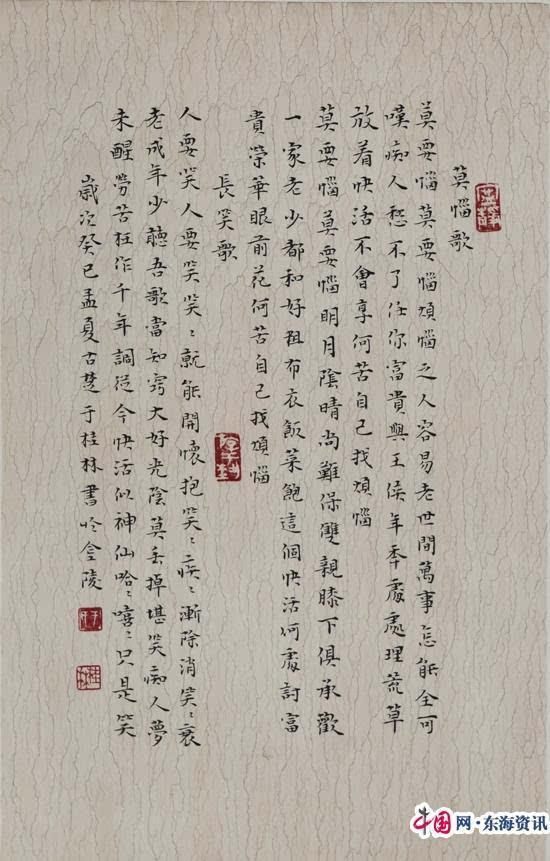 莫惱歌
莫要惱莫要惱煩惱之人容易老世間萬事怎能全可
嘆痴人愁不了任你富貴與王侯年年處處理荒草
放着快活不會享何苦自己找煩惱
莫要惱莫要惱明月陰晴尚難保雙親膝下俱承歡
一家老少都和好粗布衣飯菜飽這個快活何處討富
貴榮華眼前花何苦自己找煩惱
長笑歌
人要笑人要笑笑〻就能開懷抱笑〻疾〻漸除消笑〻衰
老成年少聽吾歌當知窍大好光陰莫丢掉堪笑痴人夢
未醒勞苦枉作千年調從今快活似神仙哈〻嘻〻只是笑
歲次癸巳孟夏古楚于桂林書於金陵
中国网·东海资讯